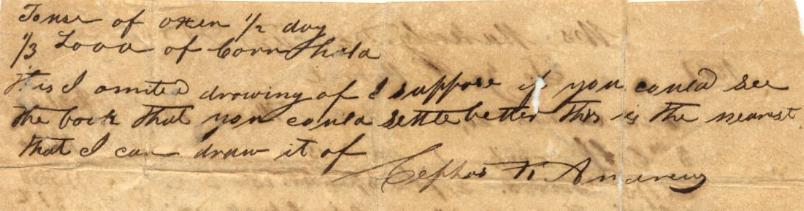 To use of oxen 1/2 day
1/3 Load of Corn
it is I omited drawing of I suppose if you could see
the book that you could settle better this is the nearest
that I can draw it of
Cephas K Andrews